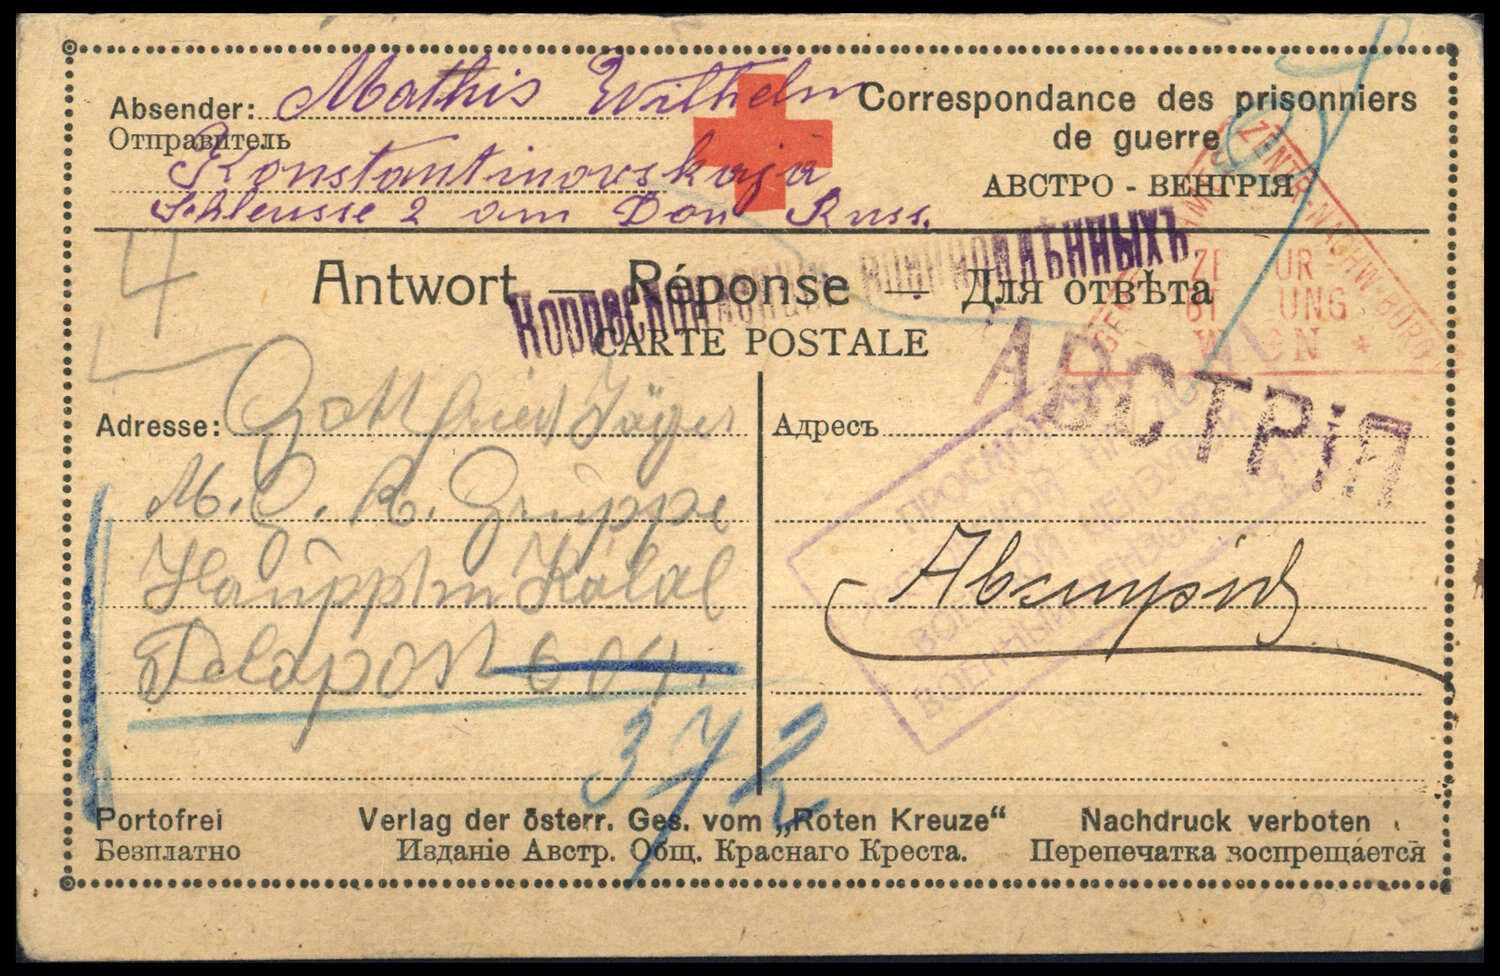 Absender: Mathis Wilhelm
Отправитель
Konstantinowskaja
Schleusse 2 am Don Russ.
Correspondance des prisonniers
de guerre
АВСТРО - ВЕНГРІЯ
Antwort — Réponse — Для отвѣта
CARTE POSTALE
4
Adresse: Gottfried Jäger
M. G. K. Gruppe
Hauptm Kalal
Feldpost 604.
372
Адресъ
АВСТРІЯ
Австрія
ZENTR-NACHW-BÜRO
WIEN *
Portofrei
Безплатно
Verlag der österr. Ges. vom „Roten Kreuze“
Изданіе Австр. Общ. Краснаго Креста.
Nachdruck verboten
Перепечатка воспрещается